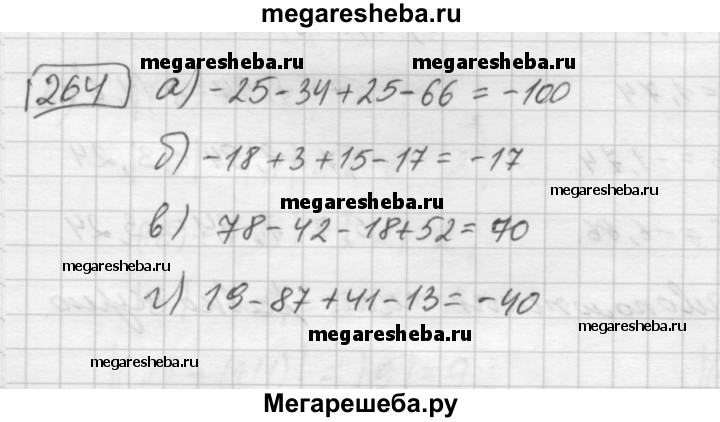 megaresheba.ru
megaresheba.ru megaresheba.ru
264 а) -25-34+25-66 = -100
б) -18+3+15-17 = -17
megaresheba.ru
megaresheba.ru
в) 78-42-18+52 = 70
megaresheba.ru
г) 19-87+41-13 = -40
megaresheba.ru
megaresheba.ru
megaresheba.ru
Мегарешеба.ру